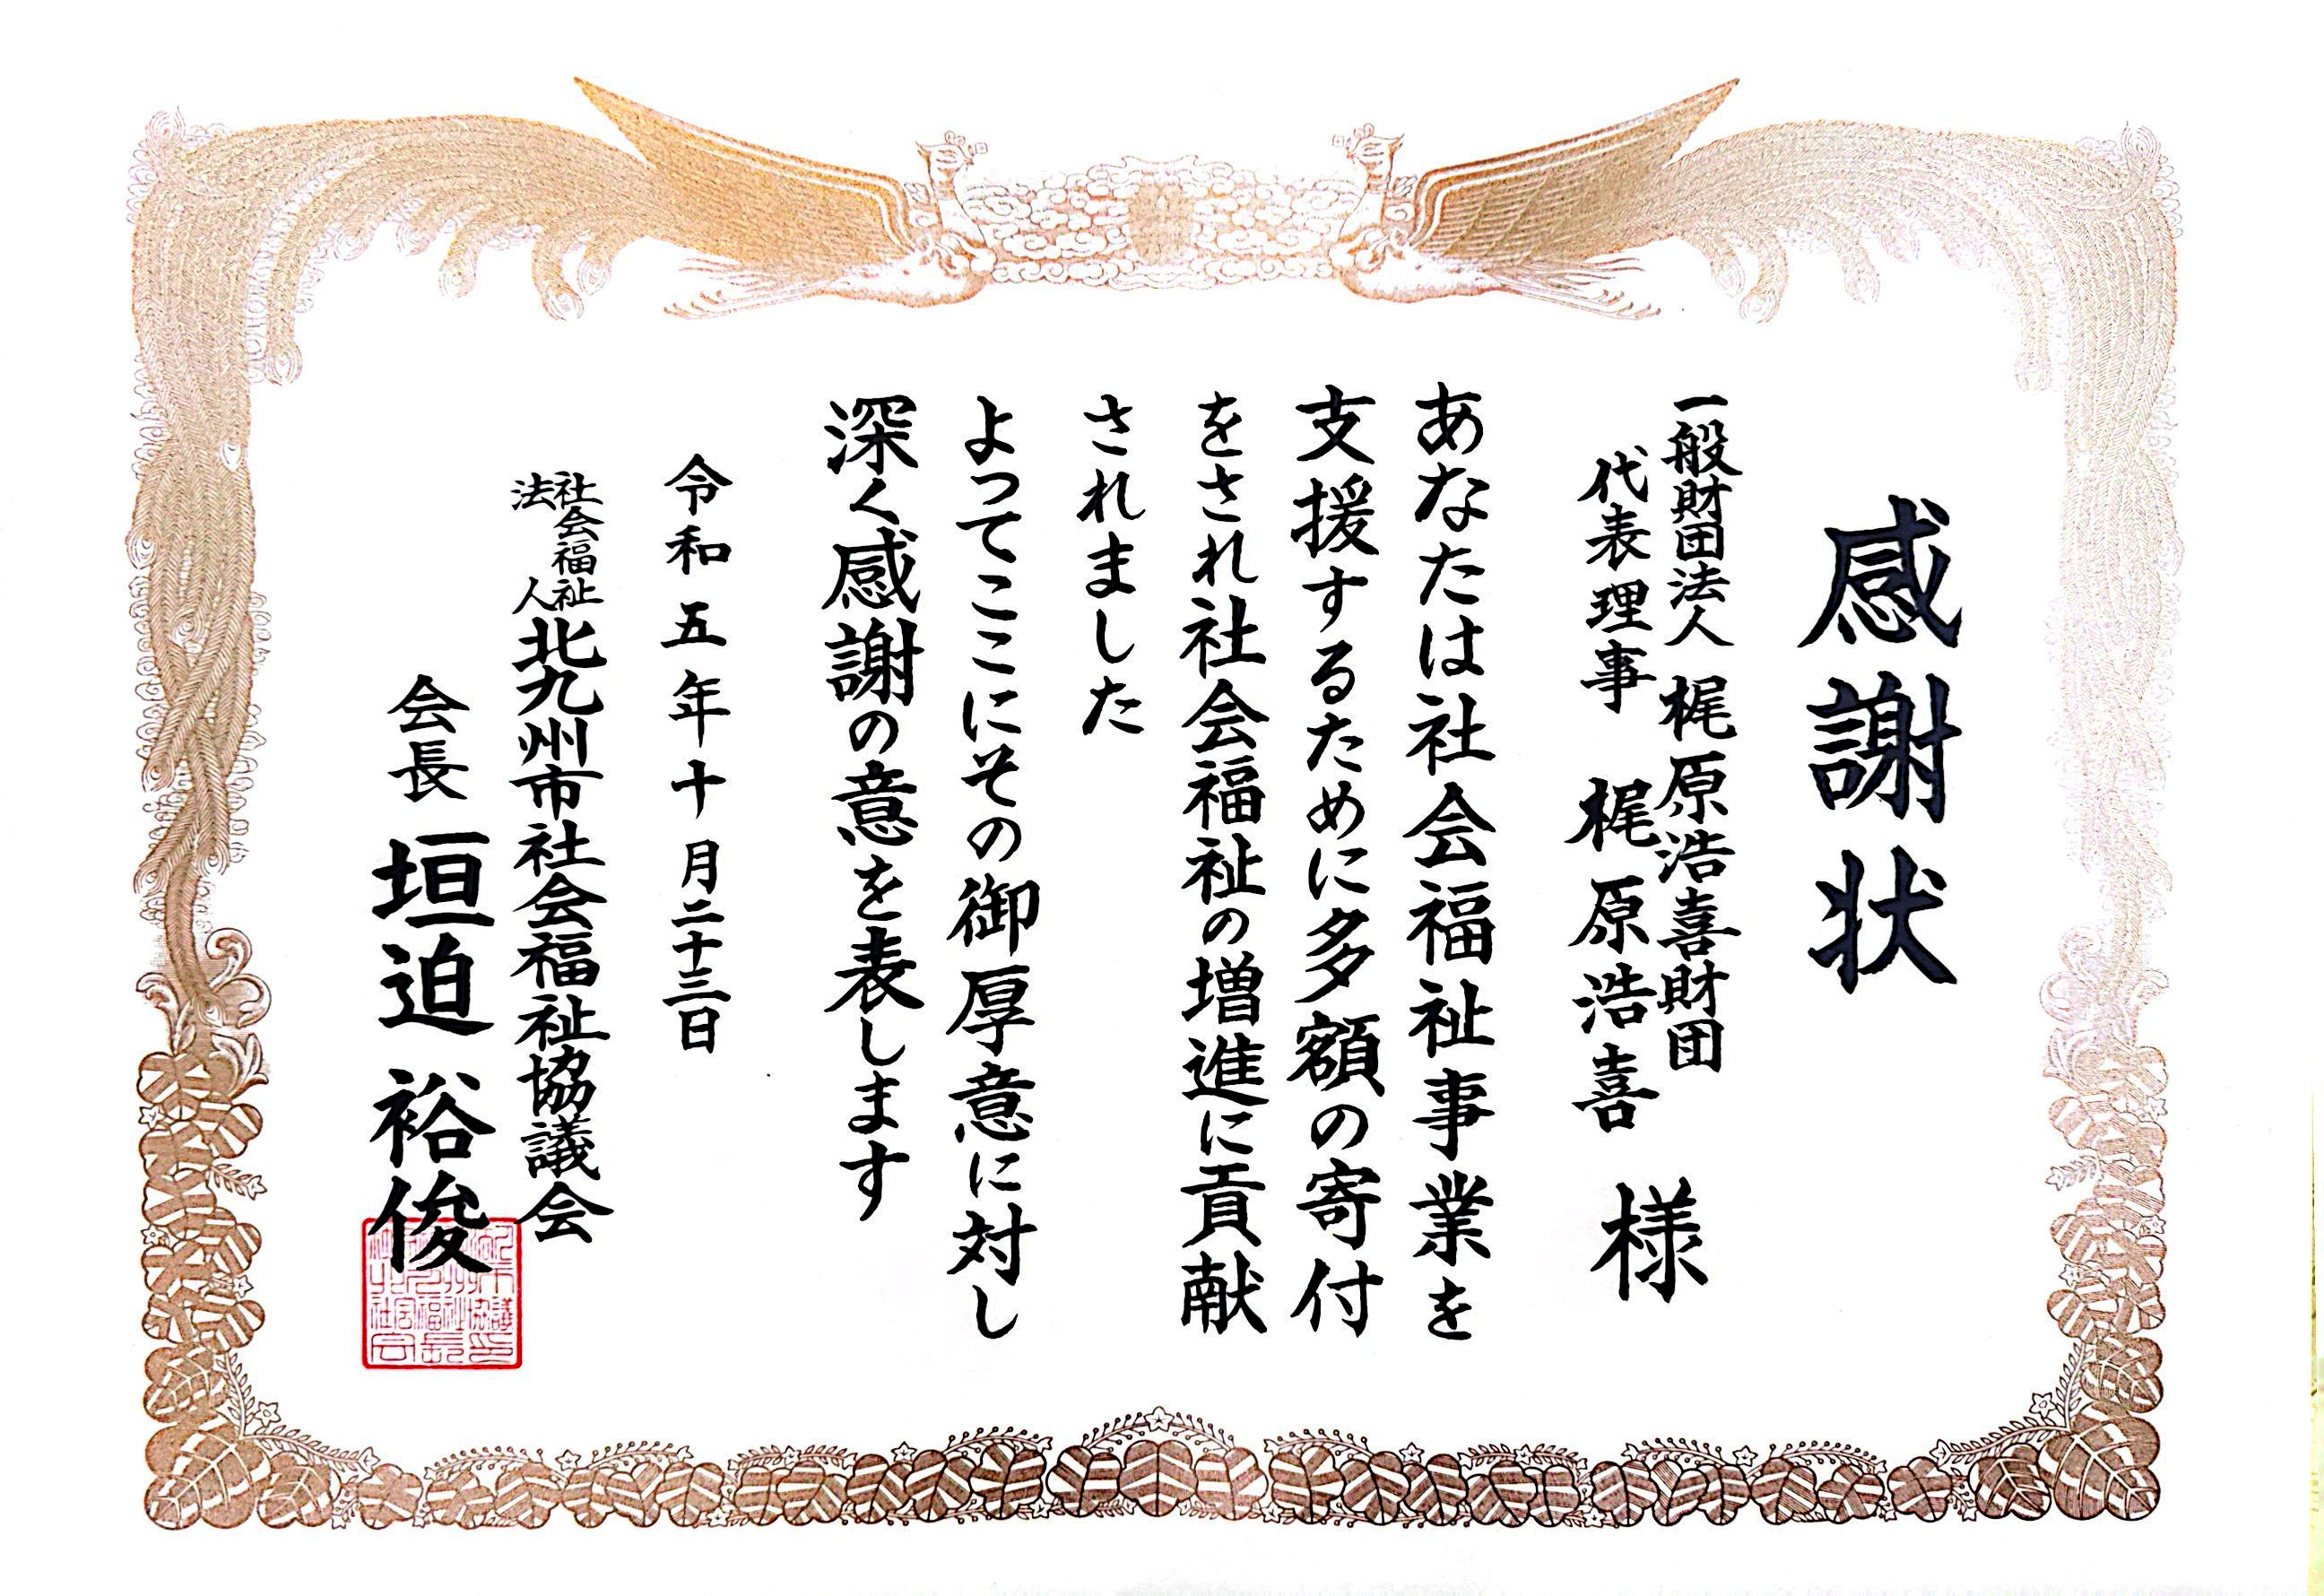 感謝状
一般財団法人 梶原浩喜財団
代表理事 梶原浩喜 様
あなたは社会福祉事業を
支援するために多額の寄付
をされ社会福祉の増進に貢献
されました
よってここにその御厚意に対し
深く感謝の意を表します
令和五年十月二十三日
社会福祉法人北九州市社会福祉協議会
会長 垣迫裕俊